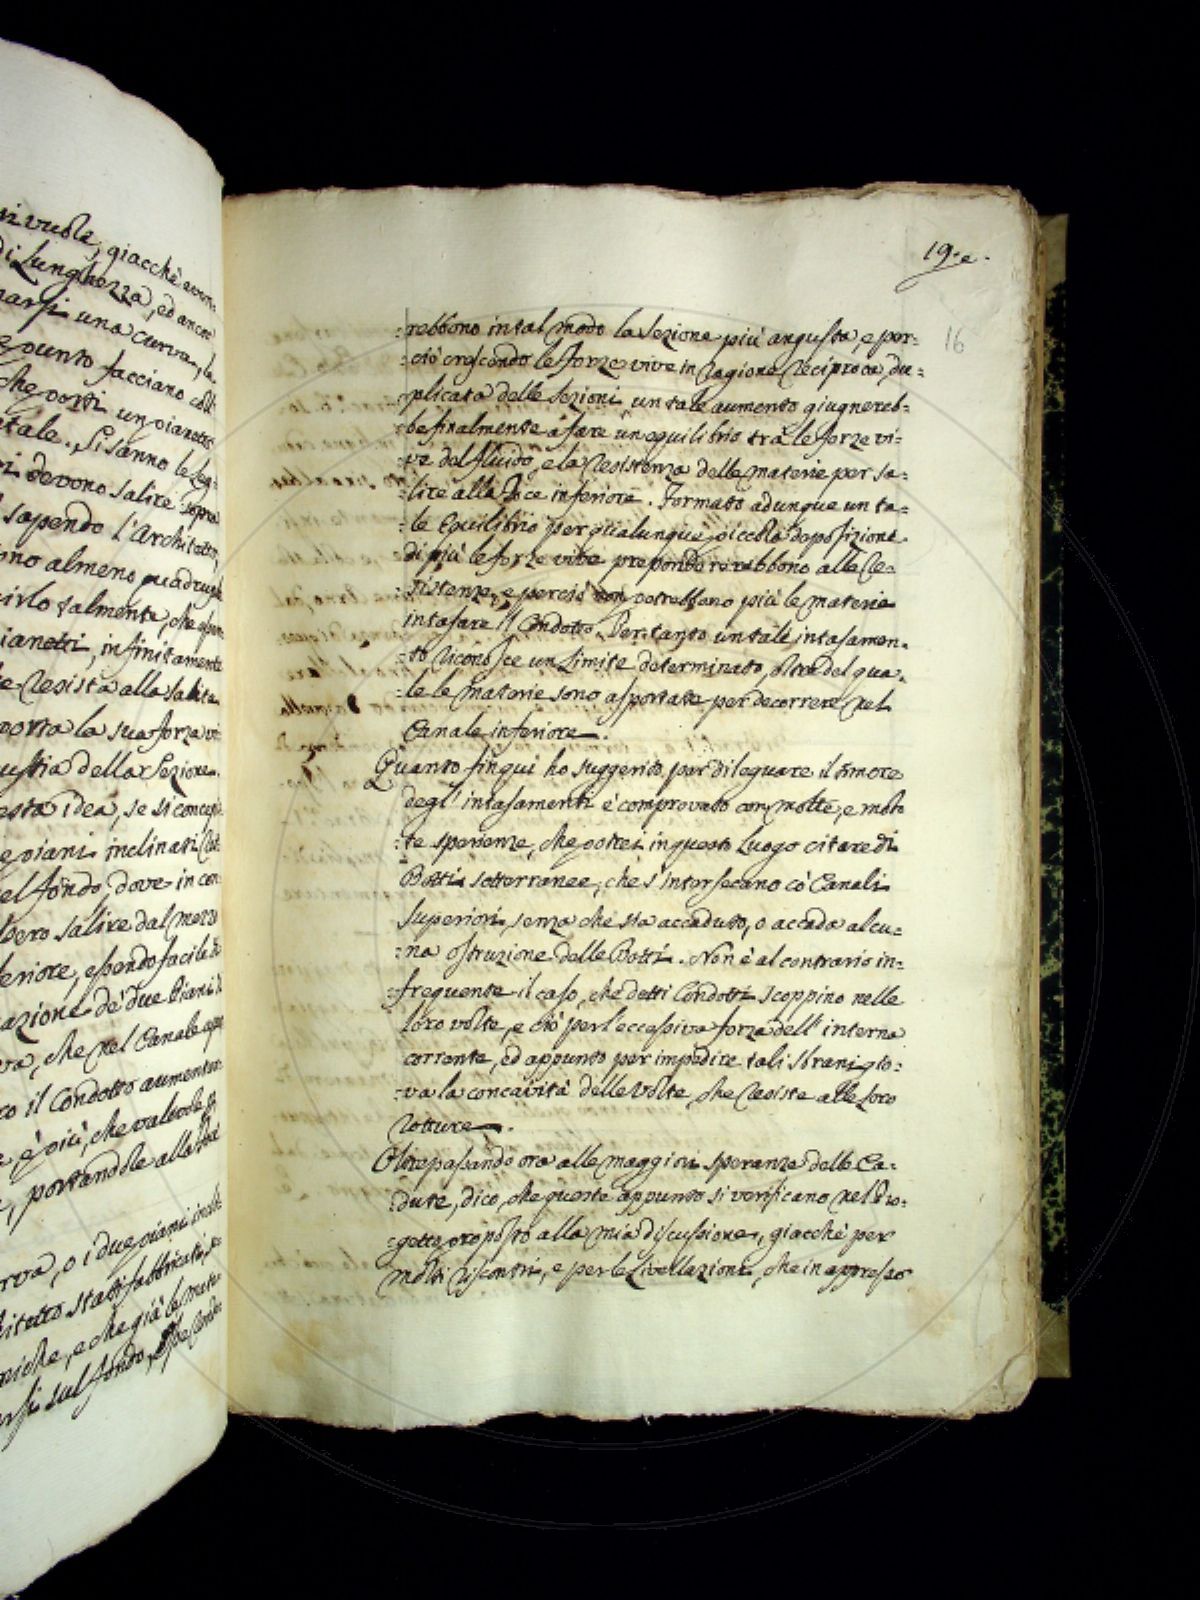 ni vuole, giacchè
di Lunghezza, ed ancor
una curva, la
punto facciano
che porti un pianetto
. Si sanno le Leg-
devono salire sopra
sapendo l'Architetto,
almeno quadrupla
talmente, che
pianetti, infinitamente
resista alla salita
la sua forza vi-
della Sezione.
idea, se si
piani inclinati
fondo, dove in con-
salire dal mezzo
essendo facile
de' due Piani
che nel Canale
il Condotto
è più, che
portandole alla
o i due piani
stati fabbricati,
e che già le
sul fondo,
19. e.
16
:rebbono in tal modo la Sezione più angusta, e per-
:ciò crescendo le forze vive in ragione reciproca, du-
:plicata delle Sezioni, un tale aumento giugnereb-
:be finalmente à fare un equilibrio trà le forze vi-
:ve del fluido, e la resistenza delle materie per sa-
:lire alla Foce inferiore. Formato adunque un ta-
:le Equilibrio per qualunque piccola deposizione
di più le forze vive preponderarebbono alle Re-
:sistenze, e perciò non potrebbono più le materie
intasare il Condotto. Per tanto un tale intasamen-
:to riconosce un Limite determinato, oltre del qua-
:le le materie sono asportate per decorrere nel
Canale inferiore.
Quanto fin quì ho suggerito per dileguare il timore
degl'intasamenti è comprovato con molte, e mol-
:te sperienze, che potrei in questo Luogo citare di
Botti sotterranee, che s'intersecano co' Canali
superiori, senza che sia accaduto, o accada alcu-
:na ostruzione delle Botti. Non è al contrario in-
:frequente il caso, che detti Condotti scoppino nelle
loro volte, e ciò per l'eccessiva forza dell'interna
corrente, ed appunto per impedire tali sbrani gio-
:va la concavità delle Volte, che resiste alle loro
rotture.
Oltrepassando ora alle maggiori speranze delle Ca-
:dute, dico, che queste appunto si verificano nel Pro-
:getto proposto alla mia discussione, giacchè per
molti riscontri, e per le Livellazioni, che in appresso